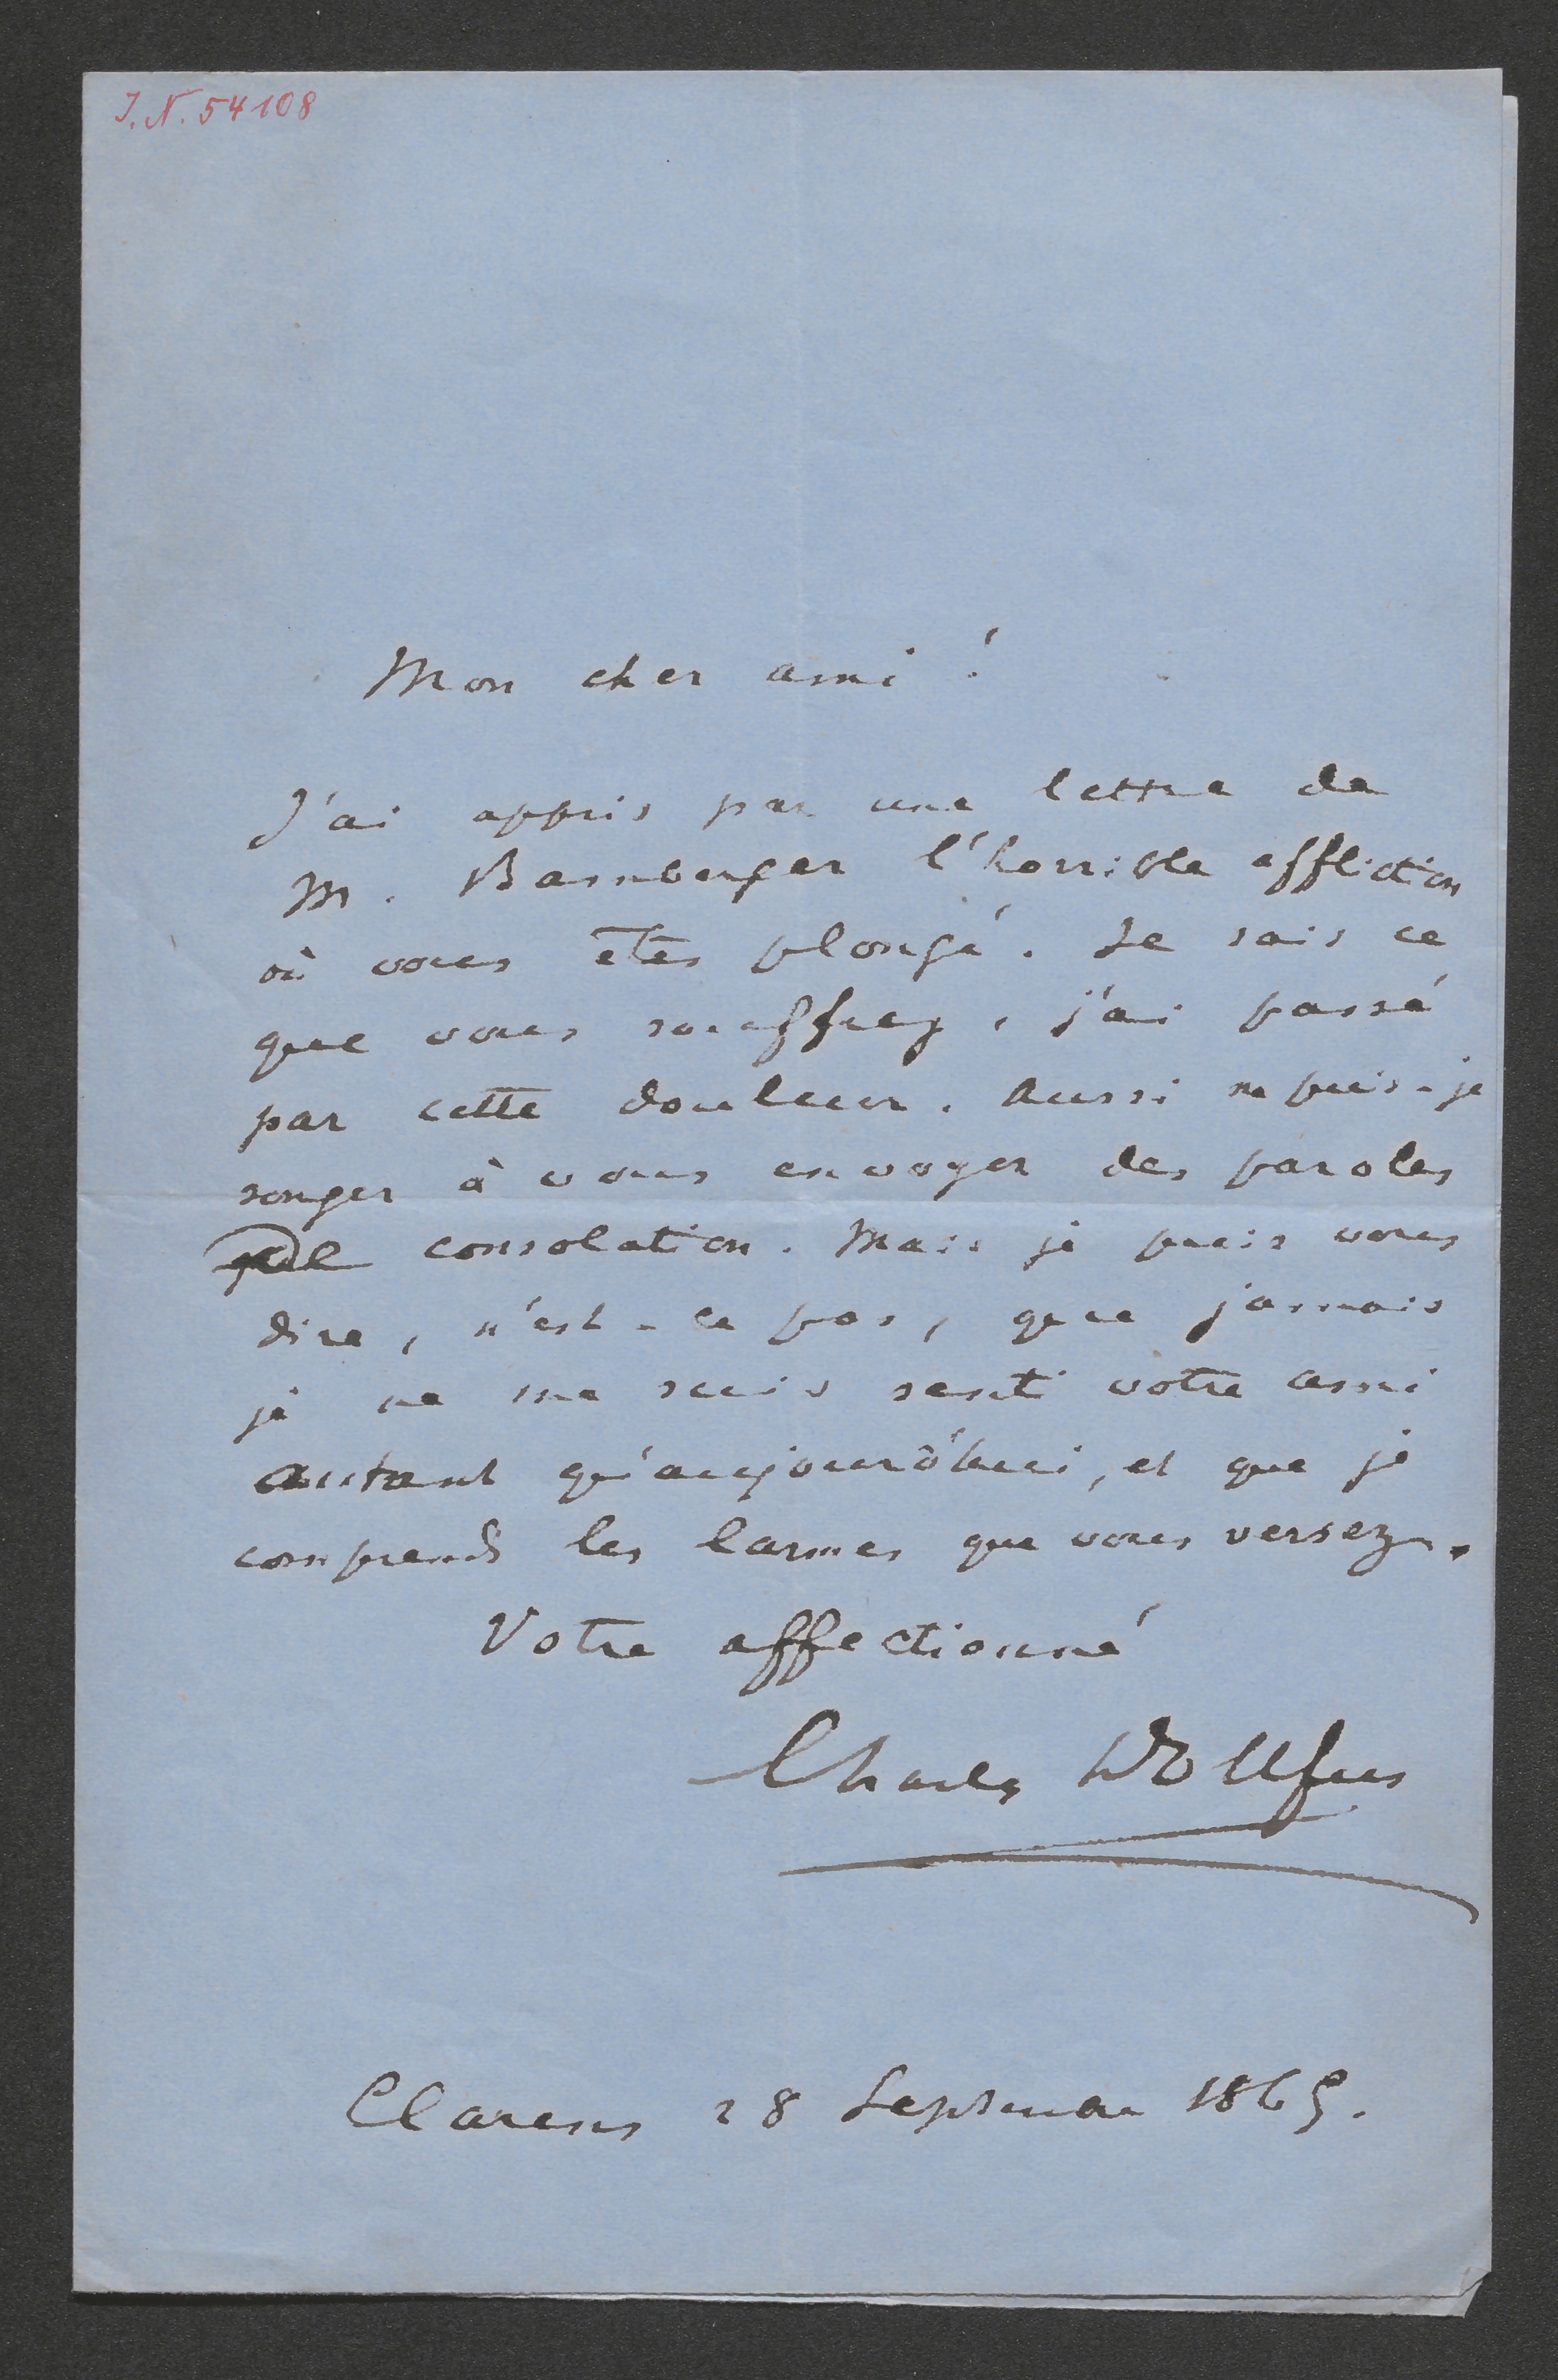 J. N. 54108
Mon cher ami !
J'ai appris par une lettre de
M. Bamberger l'horrible affliction
où vous êtes plongé. Je sais ce
que vous souffrez, j'ai passé
par cette douleur. Aussi ne puis-je
songer à vous envoyer des paroles
de consolation. Mais je puis vous
dire, n'est-ce pas, que jamais
je ne me suis senti votre ami
autant qu'aujourd'hui, et que je
comprends les larmes que vous versez.
Votre affectionné
Charles Dollfus
Clarens 28 Septembre 1865.